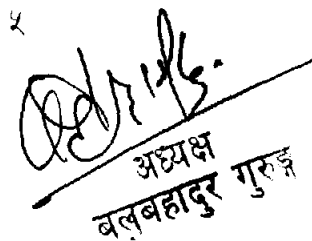 ५
अध्यक्ष
बलबहादुर गुरुङ्ग